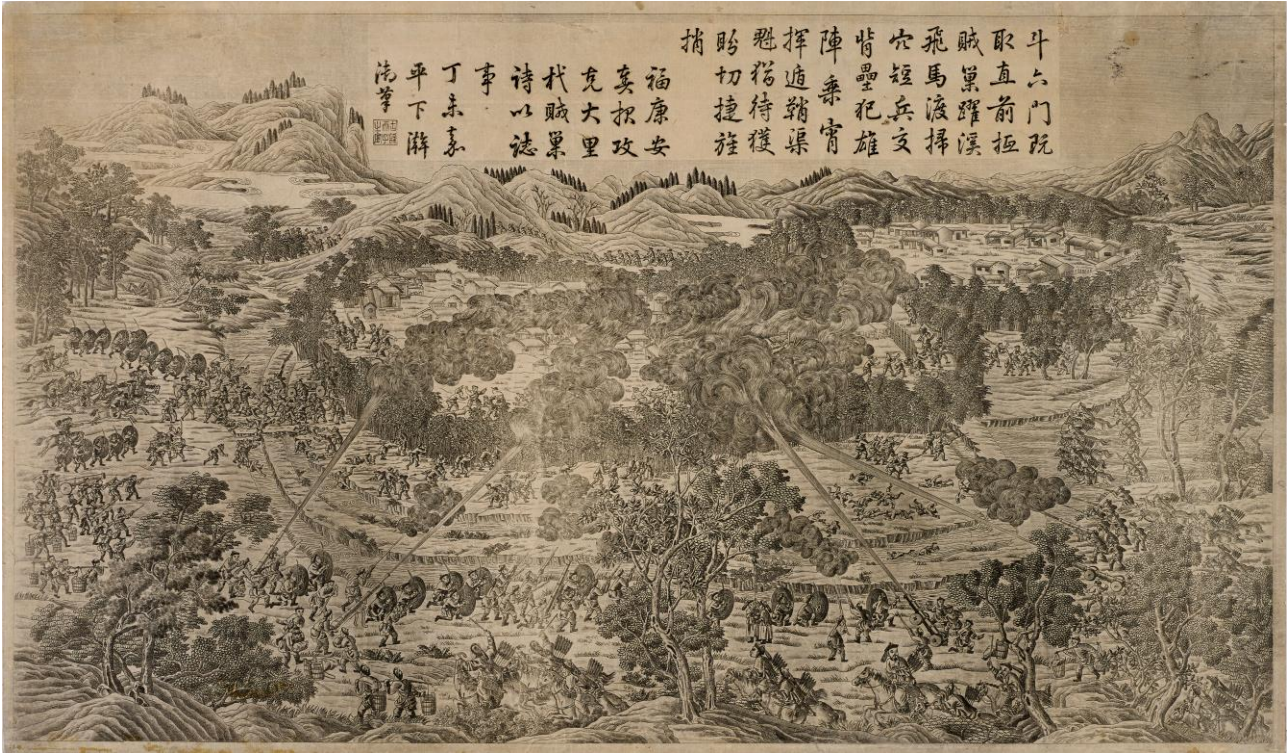 斗六門既
取直前抵
賊巢躍溪
飛馬渡掃
穴短兵交
背壘犯雄
陣乘宵
揮遁鞘渠
魁猶待獲
盼切捷旌
捎
福康安
奏报攻
克大里
杙賊巢
詩以誌
事
丁未嘉
平下澣
御筆